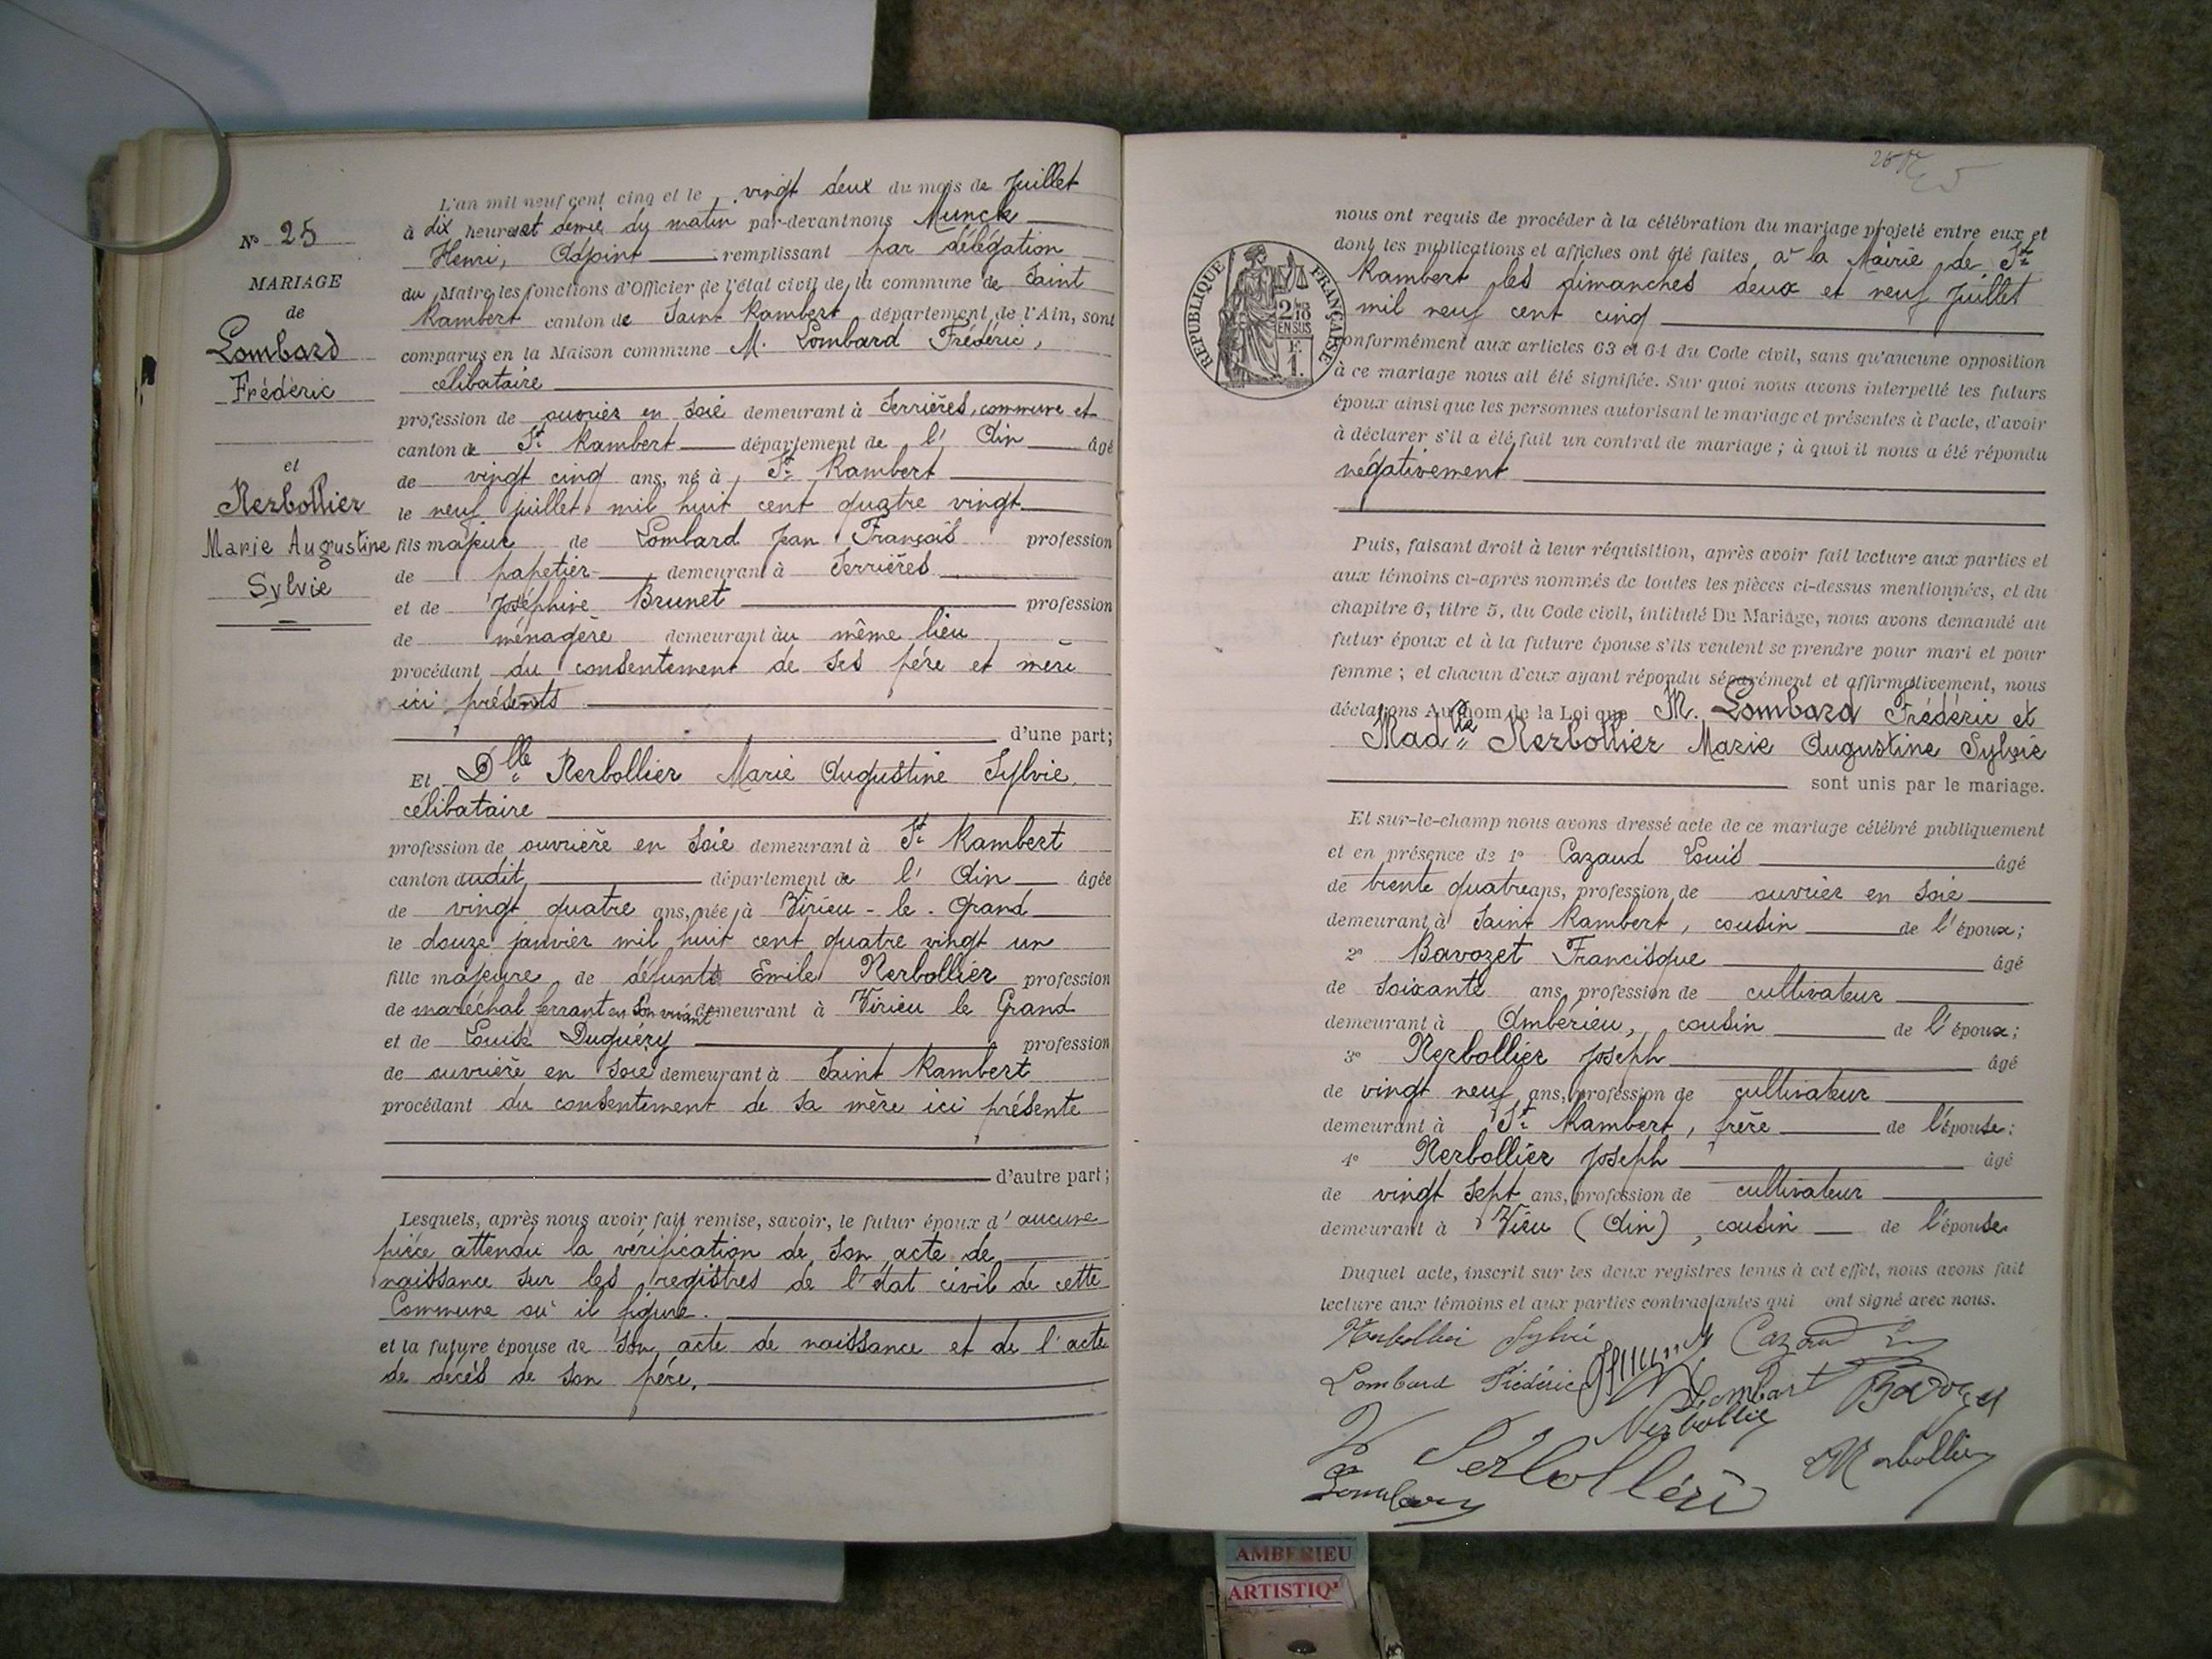 N° 25
MARIAGE
de
Lombard
Frédéric
et
Nerbollier
Marie Augustine
Sylvie
L'an mil neuf cent cinq et le vingt deux du mois de Juillet
à dix heures et demie du matin par-devant nous Munck
Henri, Adjoint remplissant par délégation
du Maire les fonctions d'Officier de l'état civil de la commune de Saint
Rambert canton de Saint Rambert département de l'Ain, sont
comparus en la Maison commune M. Lombard Frédéric,
célibataire
profession de ouvrier en soie demeurant à Serrières, commune et
canton de St Rambert département de l'Ain âgé
de vingt cinq ans, né à St Rambert
le neuf juillet mil huit cent quatre vingt
fils majeur de Lombard Jean François profession
de papetier demeurant à Serrières
et de Joséphine Brunet profession
de ménagère demeurant au même lieu
procédant du consentement de ses père et mère
ici présents
d'une part;
Et Dlle Nerbollier Marie Augustine Sylvie,
célibataire
profession de ouvrière en soie demeurant à St Rambert
canton dudit département de l'Ain âgée
de vingt quatre ans, née à Virieu-le-Grand
le douze janvier mil huit cent quatre vingt un
fille majeure de défunt Emile Nerbollier profession
de maréchal ferrant en son vivant demeurant à Virieu le Grand
et de Louise Duguéry profession
de ouvrière en soie demeurant à Saint Rambert
procédant du consentement de sa mère ici présente
d'autre part;
Lesquels, après nous avoir fait remise, savoir, le futur époux d'aucune
pièce attendu la vérification de son acte de
naissance sur les registres de l'état civil de cette
Commune où il figure.
et la future épouse de son acte de naissance et de l'acte
de décès de son père.
RÉPUBLIQUE FRANÇAISE
2/10
EN SUS
F.
1.
nous ont requis de procéder à la célébration du mariage projeté entre eux et
dont les publications et affiches ont été faites, à la Mairie de St
Rambert les dimanches deux et neuf Juillet
mil neuf cent cinq
conformément aux articles 63 et 64 du Code civil, sans qu'aucune opposition
à ce mariage nous ait été signifiée. Sur quoi nous avons interpellé les futurs
époux ainsi que les personnes autorisant le mariage et présentes à l'acte, d'avoir
à déclarer s'il a été fait un contrat de mariage ; à quoi il nous a été répondu
négativement
Puis, faisant droit à leur réquisition, après avoir fait lecture aux parties et
aux témoins ci-après nommés de toutes les pièces ci-dessus mentionnées, et du
chapitre 6, titre 5, du Code civil, intitulé Du Mariage, nous avons demandé au
futur époux et à la future épouse s'ils veulent se prendre pour mari et pour
femme ; et chacun d'eux ayant répondu séparément et affirmativement, nous
déclarons Au nom de la Loi que M. Lombard Frédéric et
Madlle Nerbollier Marie Augustine Sylvie
sont unis par le mariage.
Et sur-le-champ nous avons dressé acte de ce mariage célébré publiquement
et en présence de 1° Cazaud Louis âgé
de trente quatre ans, profession de ouvrier en soie
demeurant à Saint Rambert, cousin de l'époux;
2° Bavozet Francisque âgé
de soixante ans, profession de cultivateur
demeurant à Ambérieu, cousin de l'époux;
3° Nerbollier Joseph âgé
de vingt neuf ans, profession de cultivateur
demeurant à St Rambert, frère de l'épouse;
4° Nerbollier Joseph âgé
de vingt sept ans, profession de cultivateur
demeurant à Vieu (Ain), cousin de l'épouse
Duquel acte, inscrit sur les deux registres tenus à cet effet, nous avons fait
lecture aux témoins et aux parties contractantes qui ont signé avec nous.
Nerbollier Sylvie Cazaud
Lombard Frédéric Lombart Bavozet
Nerbollier
Nerbollier
Lombard
AMBERIEU
ARTISTIQ'